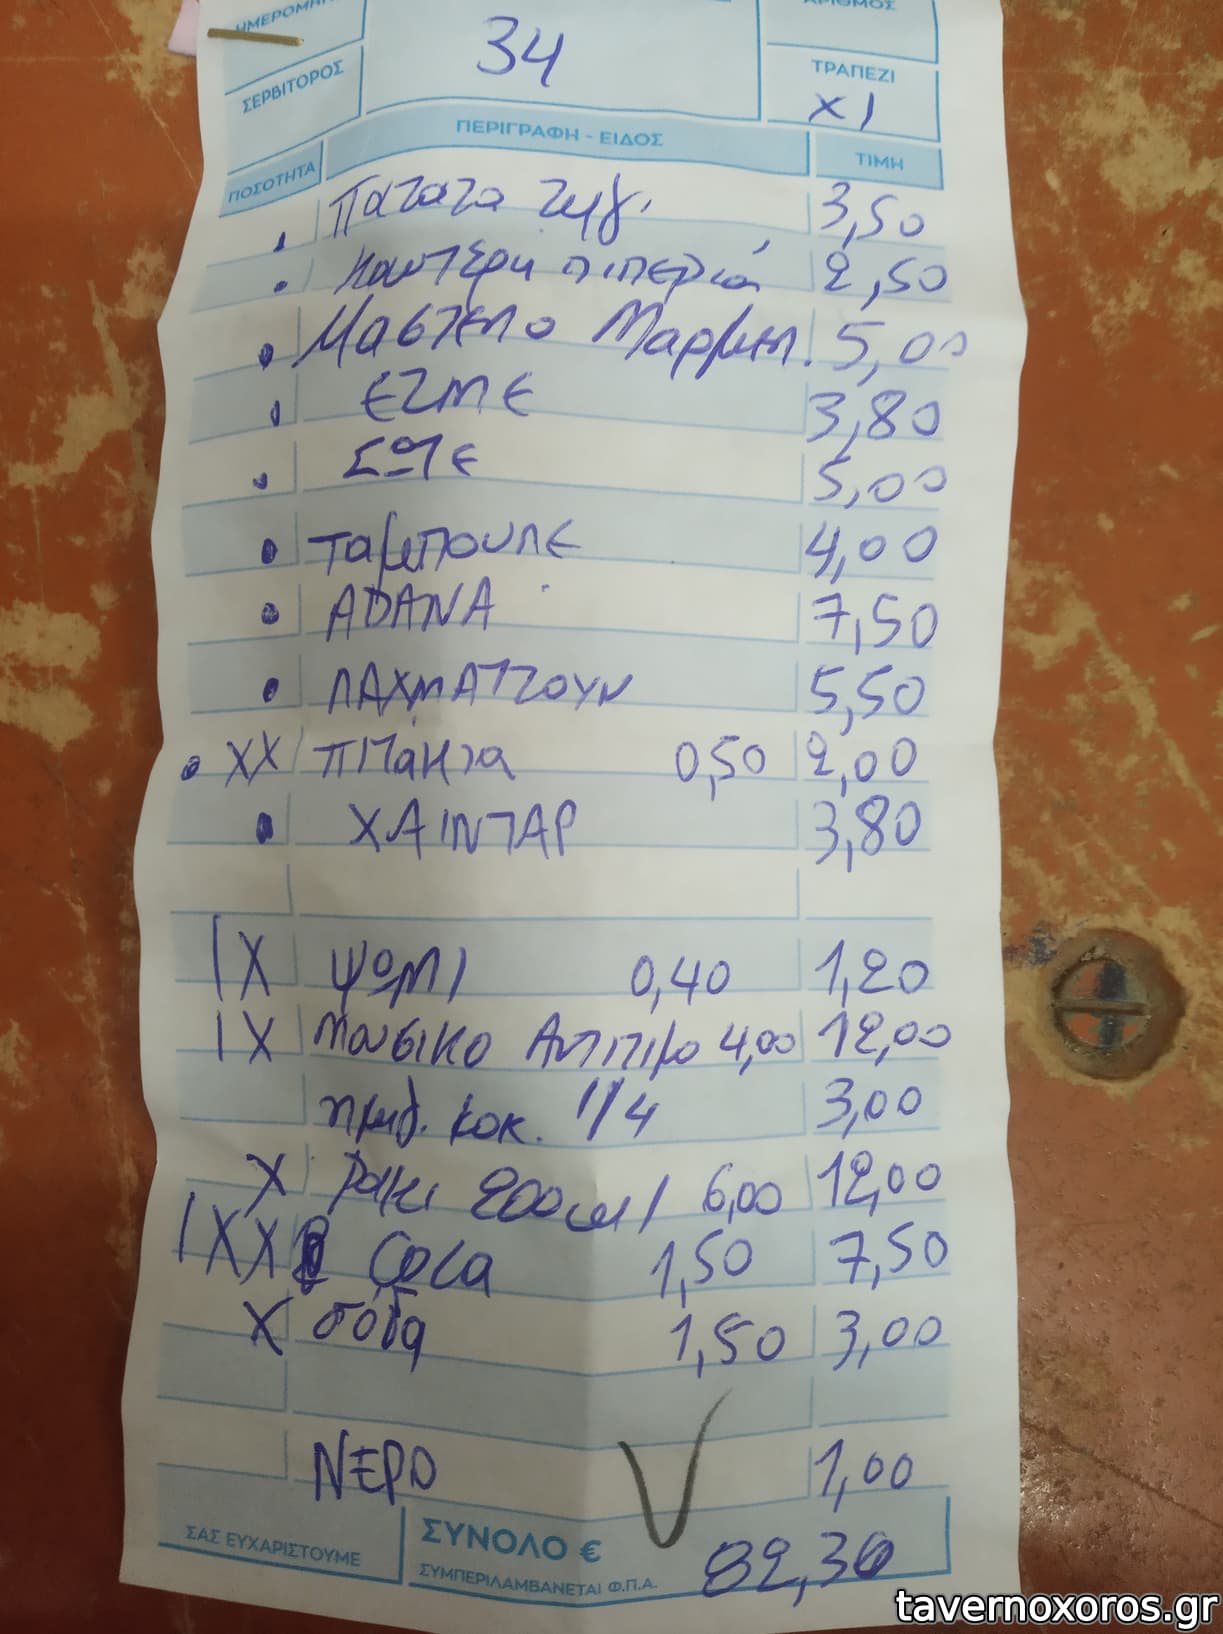 ΗΜΕΡΟΜΗΝ
ΑΡΙΘΜΟΣ
34
ΣΕΡΒΙΤΟΡΟΣ
ΤΡΑΠΕΖΙ
X1
ΠΟΣΟΤΗΤΑ ΠΕΡΙΓΡΑΦΗ - ΕΙΔΟΣ ΤΙΜΗ
Πατατα τηγ. 3,50
καυτερη πιπεριά 2,50
Μαστελο Μαρμελ. 5,00
ΕΖΜΕ 3,80
ΣΩΤΕ 5,00
ταμπουλε 4,00
ΑΔΑΝΑ 7,50
ΛΑΧΜΑΤΖΟΥΝ 5,50
XX Πιτακια 0,50 2,00
ΧΑΙΝΤΑΡ 3,80
IX ΨΩΜΙ 0,40 1,20
IX Μουσικο Αντιτιμο 4,00 12,00
ημιγ. κοκ. 1/4 3,00
X Ρακι 200ml 6,00 12,00
IXX Cola 1,50 7,50
X σόδα 1,50 3,00
ΝΕΡΟ 1,00
ΣΑΣ ΕΥΧΑΡΙΣΤΟΥΜΕ
ΣΥΝΟΛΟ €
ΣΥΜΠΕΡΙΛΑΜΒΑΝΕΤΑΙ Φ.Π.Α. 82,30
tavernoxoros.gr